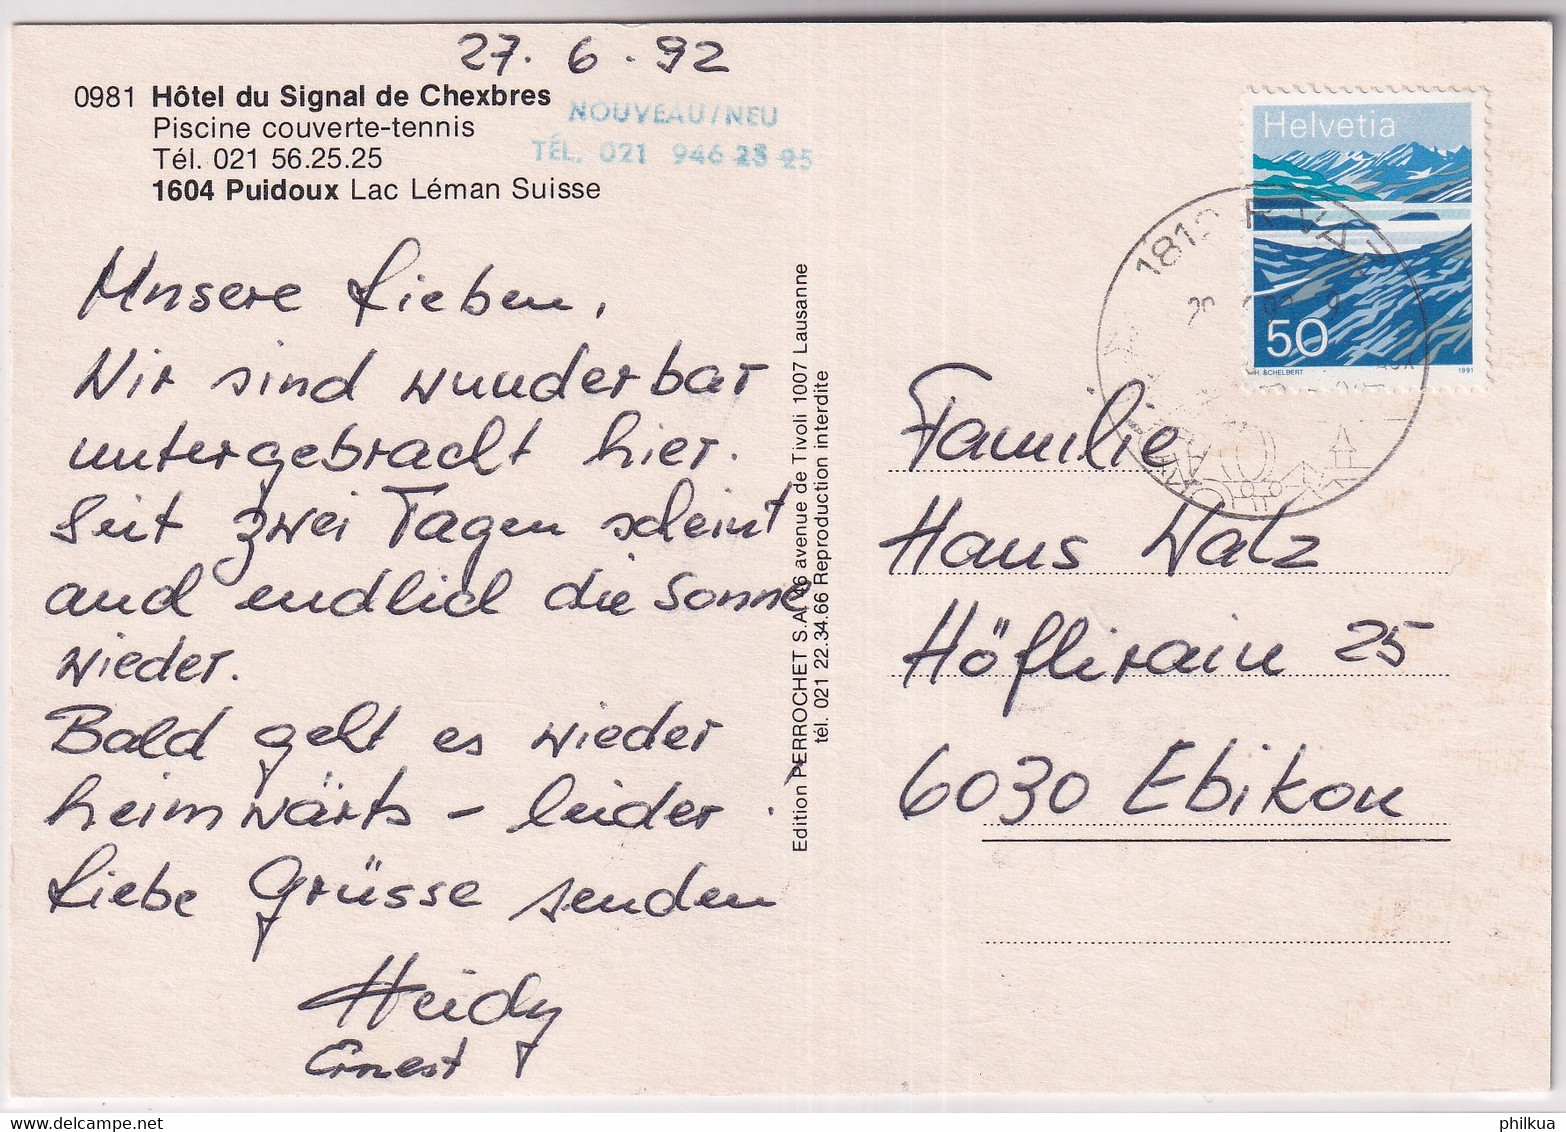 27. 6. 92
0981 Hôtel du Signal de Chexbres
Piscine couverte-tennis
Tél. 021 56.25.25
1604 Puidoux Lac Léman Suisse
NOUVEAU/NEU
TÉL. 021 946 25 25
Unsere Lieben,
Wir sind wunderbar
untergebracht hier.
Seit zwei Tagen scheint
auch endlich die Sonne
wieder.
Bald geht es wieder
heimwärts – leider.
Liebe Grüsse senden
Heidy
Ernest
Edition PERROCHET S.A. 46 avenue de Tivoli 1007 Lausanne
tél. 021 22.34.66 Reproduction interdite
Helvetia
50
H. SCHELBERT 1991
Familie
Hans Walz
Höflirain 25
6030 Ebikon
philkua